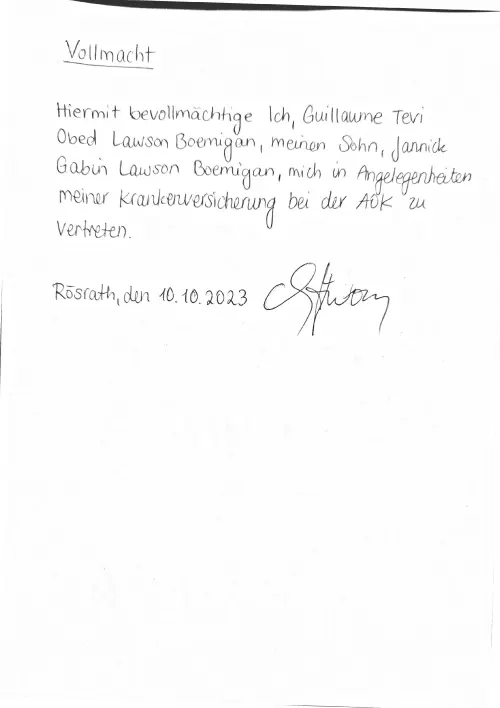 Vollmacht
Hiermit bevollmächtige Ich, Guillaume Tevi
Obed Lawson Boemigan, meinen Sohn, Jannick
Gabin Lawson Boemigan, mich in Angelegenheiten
meiner Krankenversicherung bei der AOK zu
vertreten.
Rösrath, den 10.10.2023